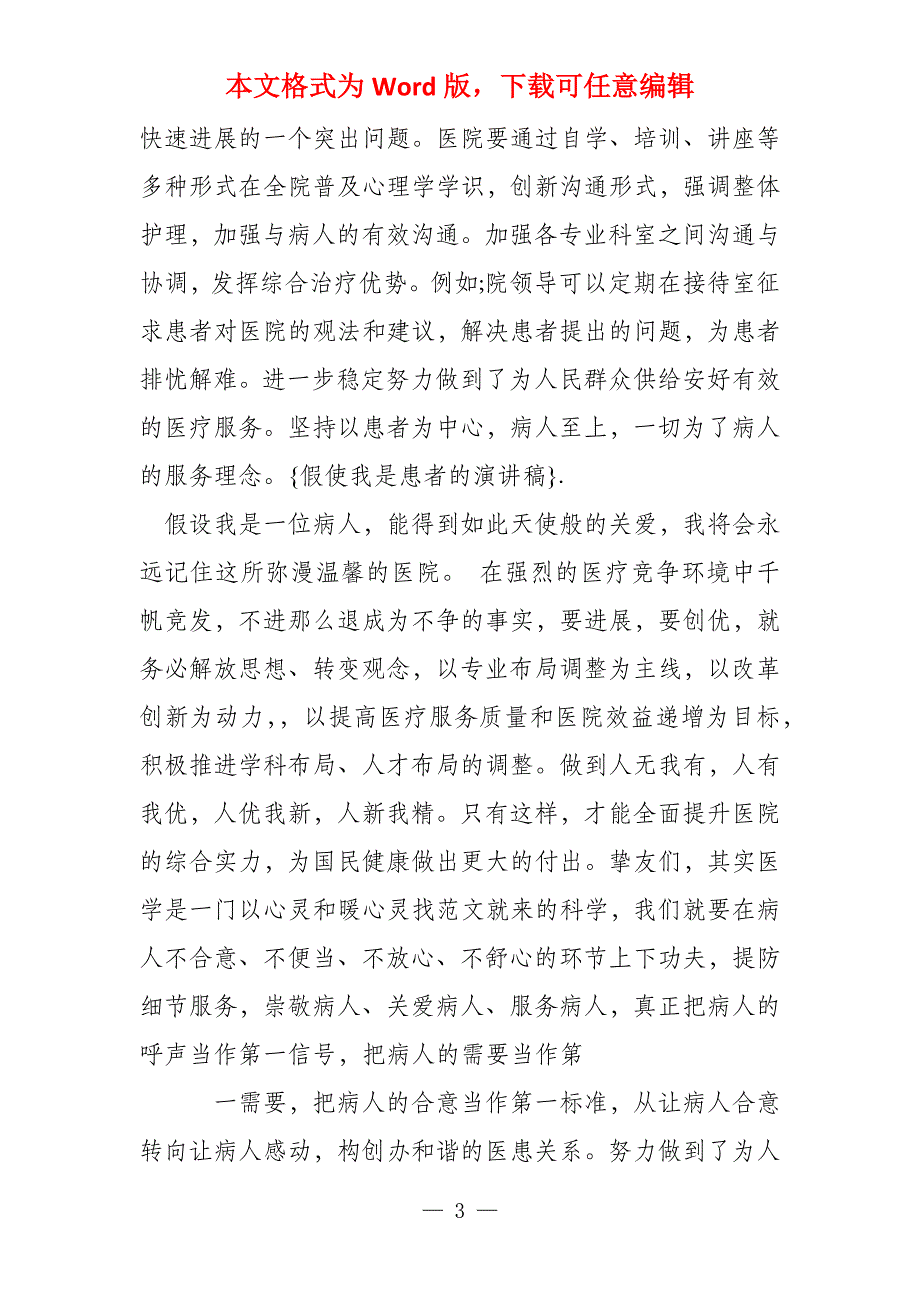 本文格式为 Word 版，下载可任意编辑
快速进展的一个突出问题。医院要通过自学、培训、讲座等
多种形式在全院普及心理学学识，创新沟通形式，强调整体
护理，加强与病人的有效沟通。加强各专业科室之间沟通与
协调，发挥综合治疗优势。例如;院领导可以定期在接待室征
求患者对医院的观法和建议，解决患者提出的问题，为患者
排忧解难。进一步稳定努力做到了为人民群众供给安好有效
的医疗服务。坚持以患者为中心，病人至上，一切为了病人
的服务理念。{假使我是患者的演讲稿}.
假设我是一位病人，能得到如此天使般的关爱，我将会永
远记住这所弥漫温馨的医院。 在强烈的医疗竞争环境中千
帆竞发，不进那么退成为不争的事实，要进展，要创优，就
务必解放思想、转变观念，以专业布局调整为主线，以改革
创新为动力，，以提高医疗服务质量和医院效益递增为目标，
积极推进学科布局、人才布局的调整。做到人无我有，人有
我优，人优我新，人新我精。只有这样，才能全面提升医院
的综合实力，为国民健康做出更大的付出。挚友们，其实医
学是一门以心灵和暖心灵找范文就来的科学，我们就要在病
人不合意、不便当、不放心、不舒心的环节上下功夫，提防
细节服务，崇敬病人、关爱病人、服务病人，真正把病人的
呼声当作第一信号，把病人的需要当作第
一需要，把病人的合意当作第一标准，从让病人合意
转向让病人感动，构创办和谐的医患关系。努力做到了为人
— 3 —